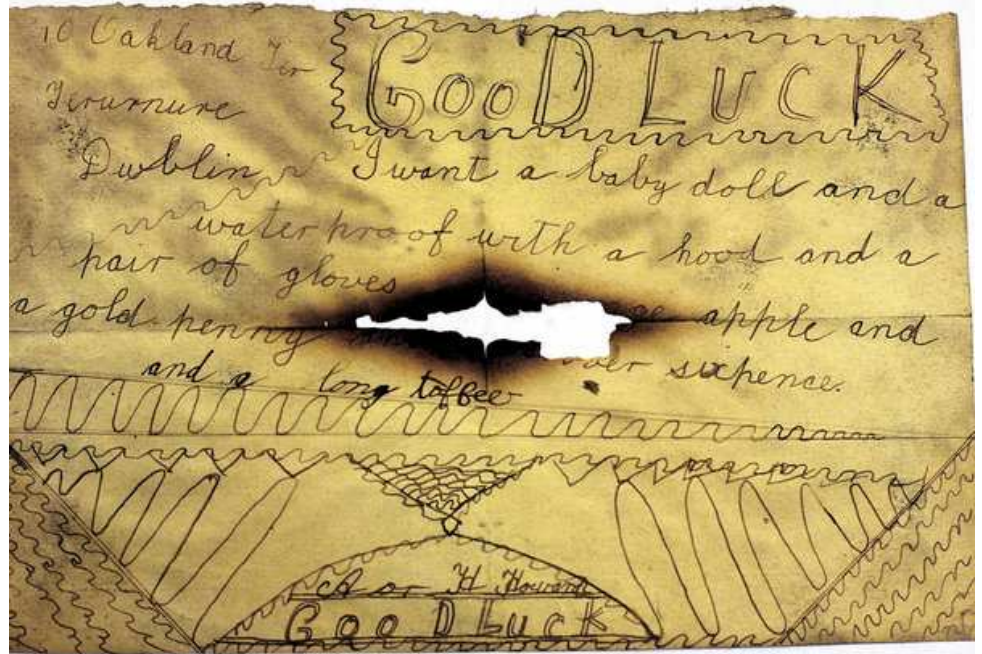 10 Oakland Ter
GOOD LUCK
Terurnure
Dublin I want a baby doll and a
waterproof with a hood and a
pair of gloves
a gold penny apple and
sixpence.
and a long toffee
A or H Howard
GOOD LUCK